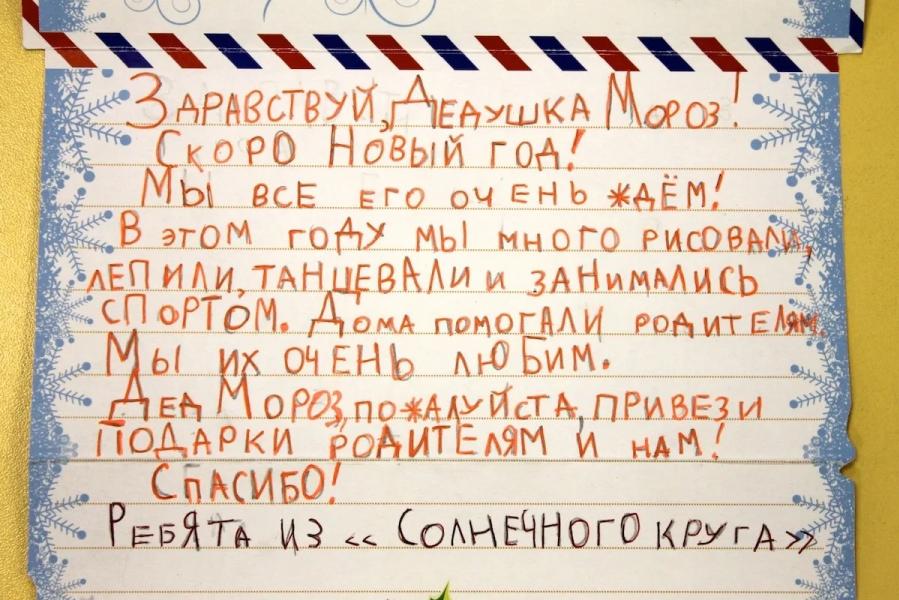 Здравствуй, Дедушка Мороз!
Скоро Новый год!
Мы все его очень ждём!
В этом году мы много рисовали,
лепили, танцевали и занимались
спортом. Дома помогали родителям.
Мы их очень любим.
Дед Мороз, пожалуйста, привези
подарки родителям и нам!
Спасибо!
Ребята из «Солнечного круга»